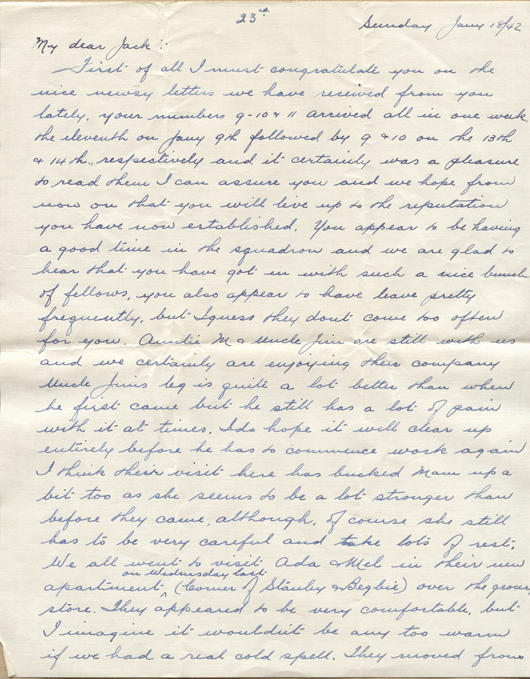 23rd
Sunday Jany 18/42
My dear Jack:
First of all I must congratulate you on the
nice newsy letters we have received from you
lately, your numbers 9-10 & 11 arrived all in one week
the eleventh on Jany 9th followed by 9 & 10 on the 13th
& 14th., respectively and it certainly was a pleasure
to read them I can assure you and we hope from
now on that you will live up to the reputation
you have now established. You appear to be having
a good time in the squadron and we are glad to
hear that you have got in with such a nice bunch
of fellows, you also appear to have leave pretty
frequently, but I guess they dont come too often
for you. Auntie M & Uncle Jim are still with us
and we certainly are enjoying their company
Uncle Jims leg is quite a lot better than when
he first came but he still has a lot of pain
with it at times. I do hope it will clear up
entirely before he has to commence work again
I think their visit here has bucked Mam up a
bit too as she seems to be a lot stronger than
before they came, although, of course she still
has to be very careful and take lots of rest;
We all went to visit Ada & Mel in their new
on Wednesday last
apartment, (Corner of Stanley & Begbie) over the groc
store. They appeared to be very comfortable, but
I imagine it wouldn't be any too warm
if we had a real cold spell. They moved from